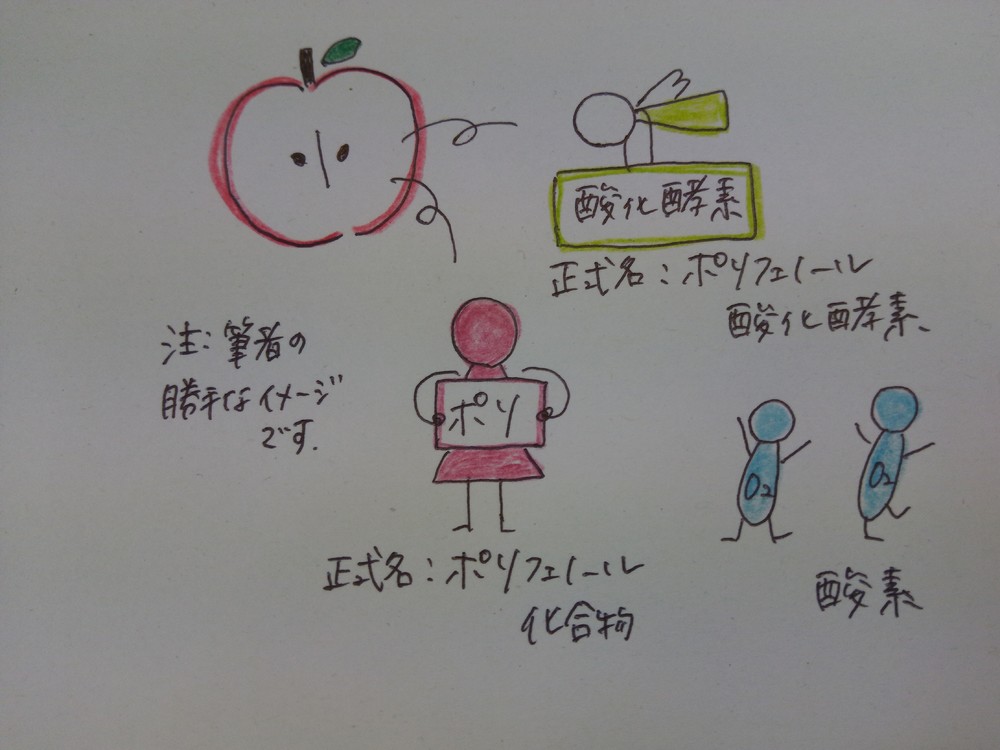 酸化酵素
正式名：ポリフェノール
酸化酵素、
注：筆者の
勝手なイメージ
です。
ポリ
O₂
O₂
正式名：ポリフェノール
化合物
酸素